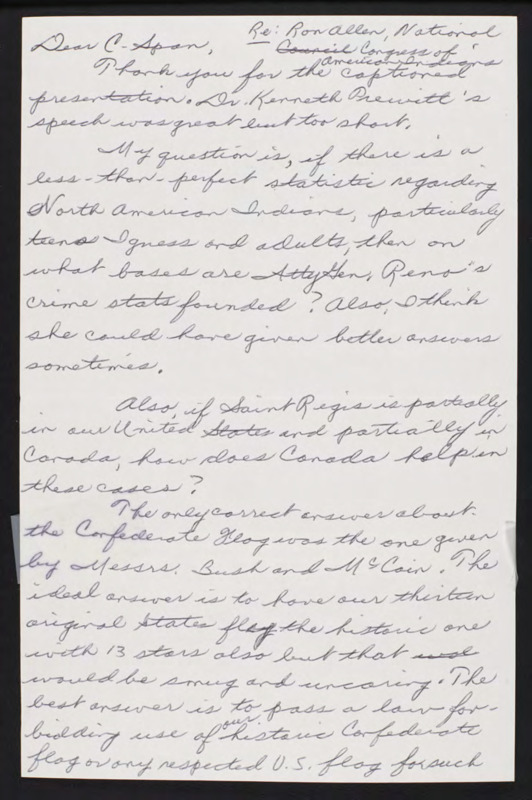 Re: Ron Allen, National
Dear C-Span, Council Congress of
American Indians
Thank you for the captioned
presentation. Dr. Kenneth Prewitt's
speech was great but too short.
My question is, if there is a
less-than-perfect statistic regarding
North American Indians, particularly
teens I guess and adults, then on
what bases are Atty Gen. Reno's
crime stats founded? Also, I think
she could have given better answers
sometimes.
Also, if Saint Regis is partially
in our United States and partially in
Canada, how does Canada help in
these cases?
The only correct answer about
the Confederate Flag was the one given
by Messrs. Bush and McCain. The
ideal answer is to have our thirteen
original States flag the historic one
with 13 stars also but that
would be smug and uncaring. The
best answer is to pass a law for-
bidding use of our historic Confederate
flag or any respected U.S. flag for such